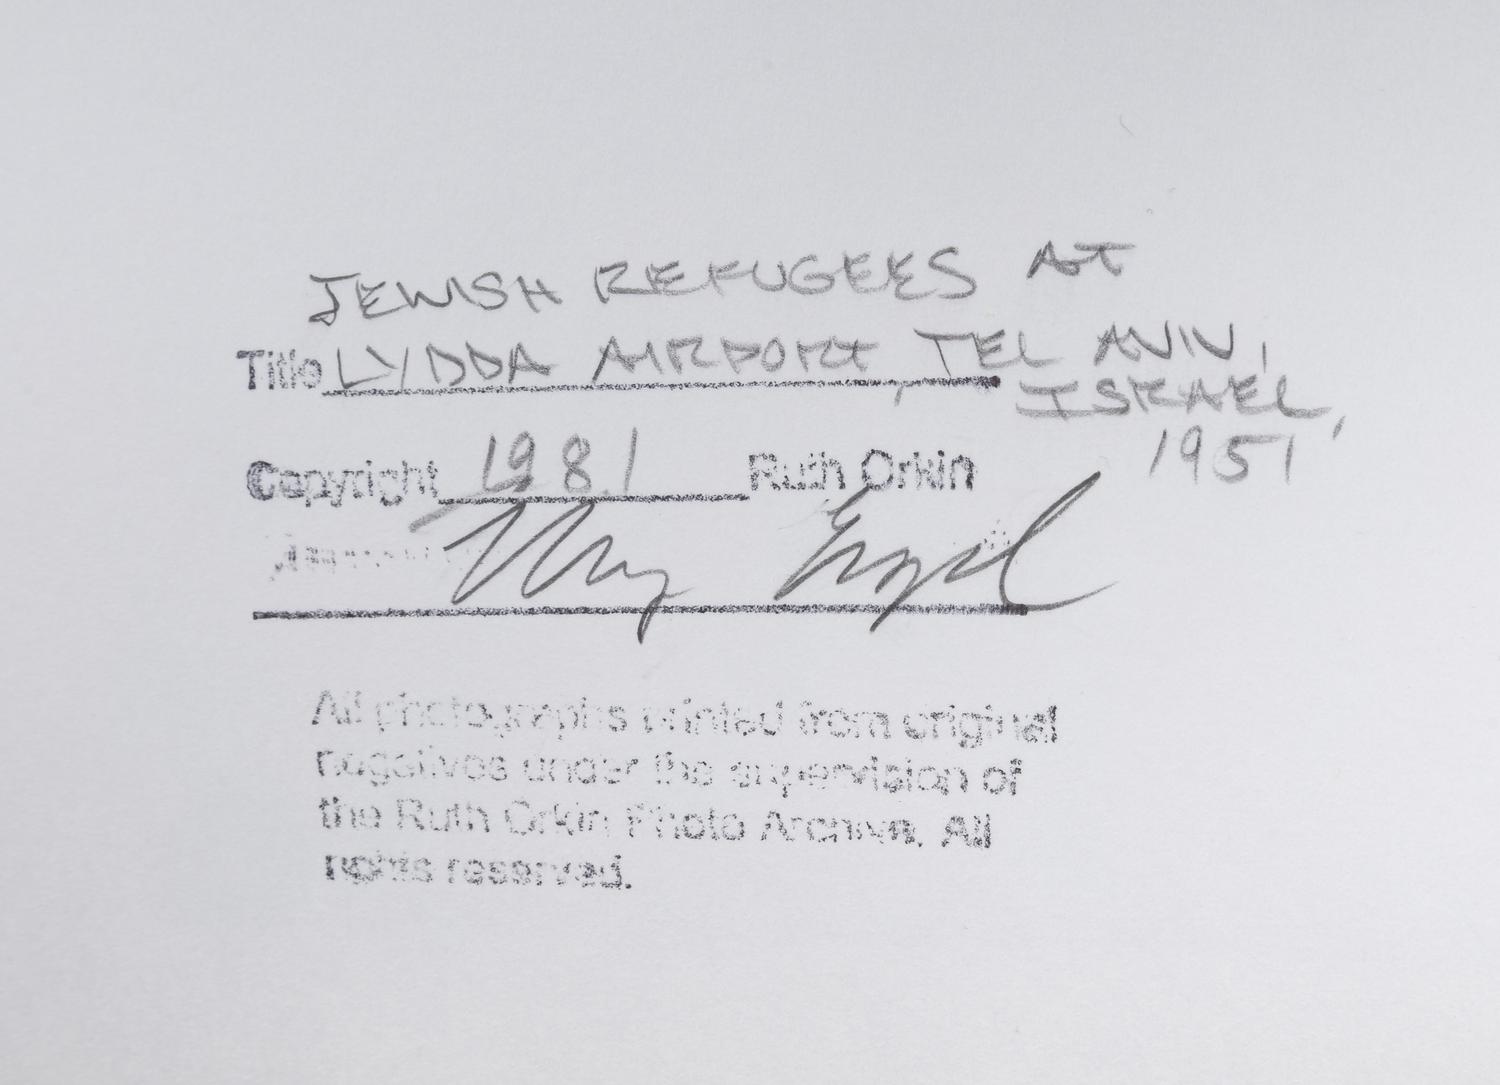 JEWISH REFUGEES AT
Title LYDDA AIRPORT, TEL AVIV,
ISRAEL,
1951
Copyright 1981 Ruth Orkin
Mary Engel
All photographs printed from original
negatives under the supervision of
the Ruth Orkin Photo Archive. All
rights reserved.